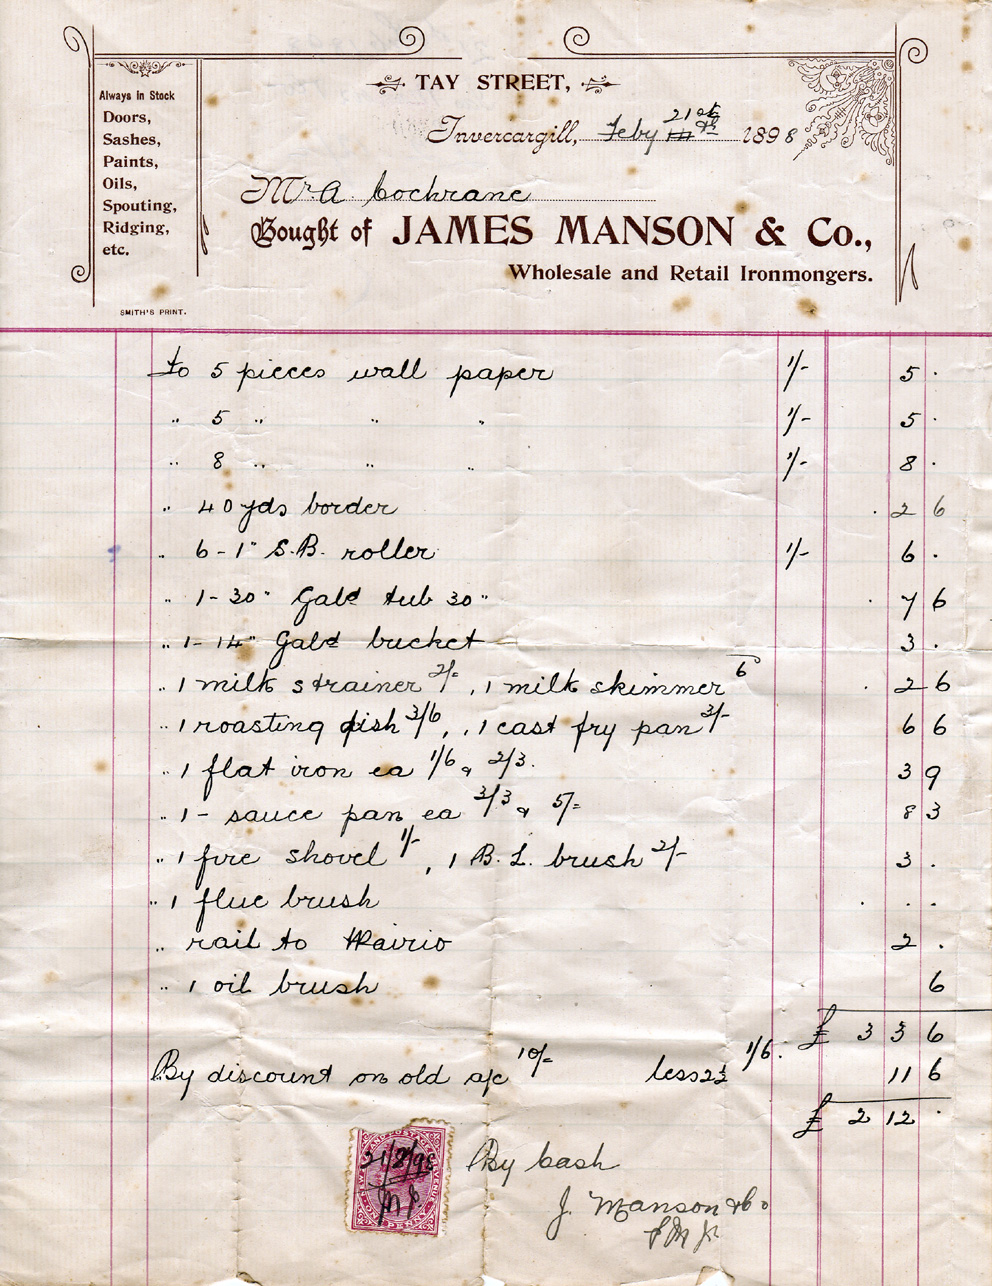 TAY STREET,
Always in Stock
Doors,
Sashes,
Paints,
Oils,
Spouting,
Ridging,
etc.
SMITH'S PRINT.
Invercargill, Feby 21st 1898
Mr A. Cochrane
Bought of JAMES MANSON & Co.,
Wholesale and Retail Ironmongers.
To 5 pieces wall paper 1/- 5 .
" 5 " " " 1/- 5 .
" 8 " " " 1/- 8 .
" 40 yds border . 2 6
" 6 - 1" S.B. roller 1/- 6 .
" 1 - 30" Galvd tub 30" . 7 6
" 1 - 14" Galvd bucket 3 .
" 1 milk strainer 2/-, 1 milk skimmer 6 . 2 6
" 1 roasting dish 3/6, 1 cast fry pan 3/- 6 6
" 1 flat iron ea 1/6 & 2/3. 3 9
" 1 - sauce pan ea 3/3 & 5/- 8 3
" 1 fire shovel 1/-, 1 B.L. brush 2/- 3 .
" 1 flue brush . . .
" rail to Wairio 2 .
" 1 oil brush 6
£ 3 3 6
By discount on old a/c 10/- less 2½ 1/6. 11 6
£ 2 12 .
21/2/98
By Cash
J. Manson & Co